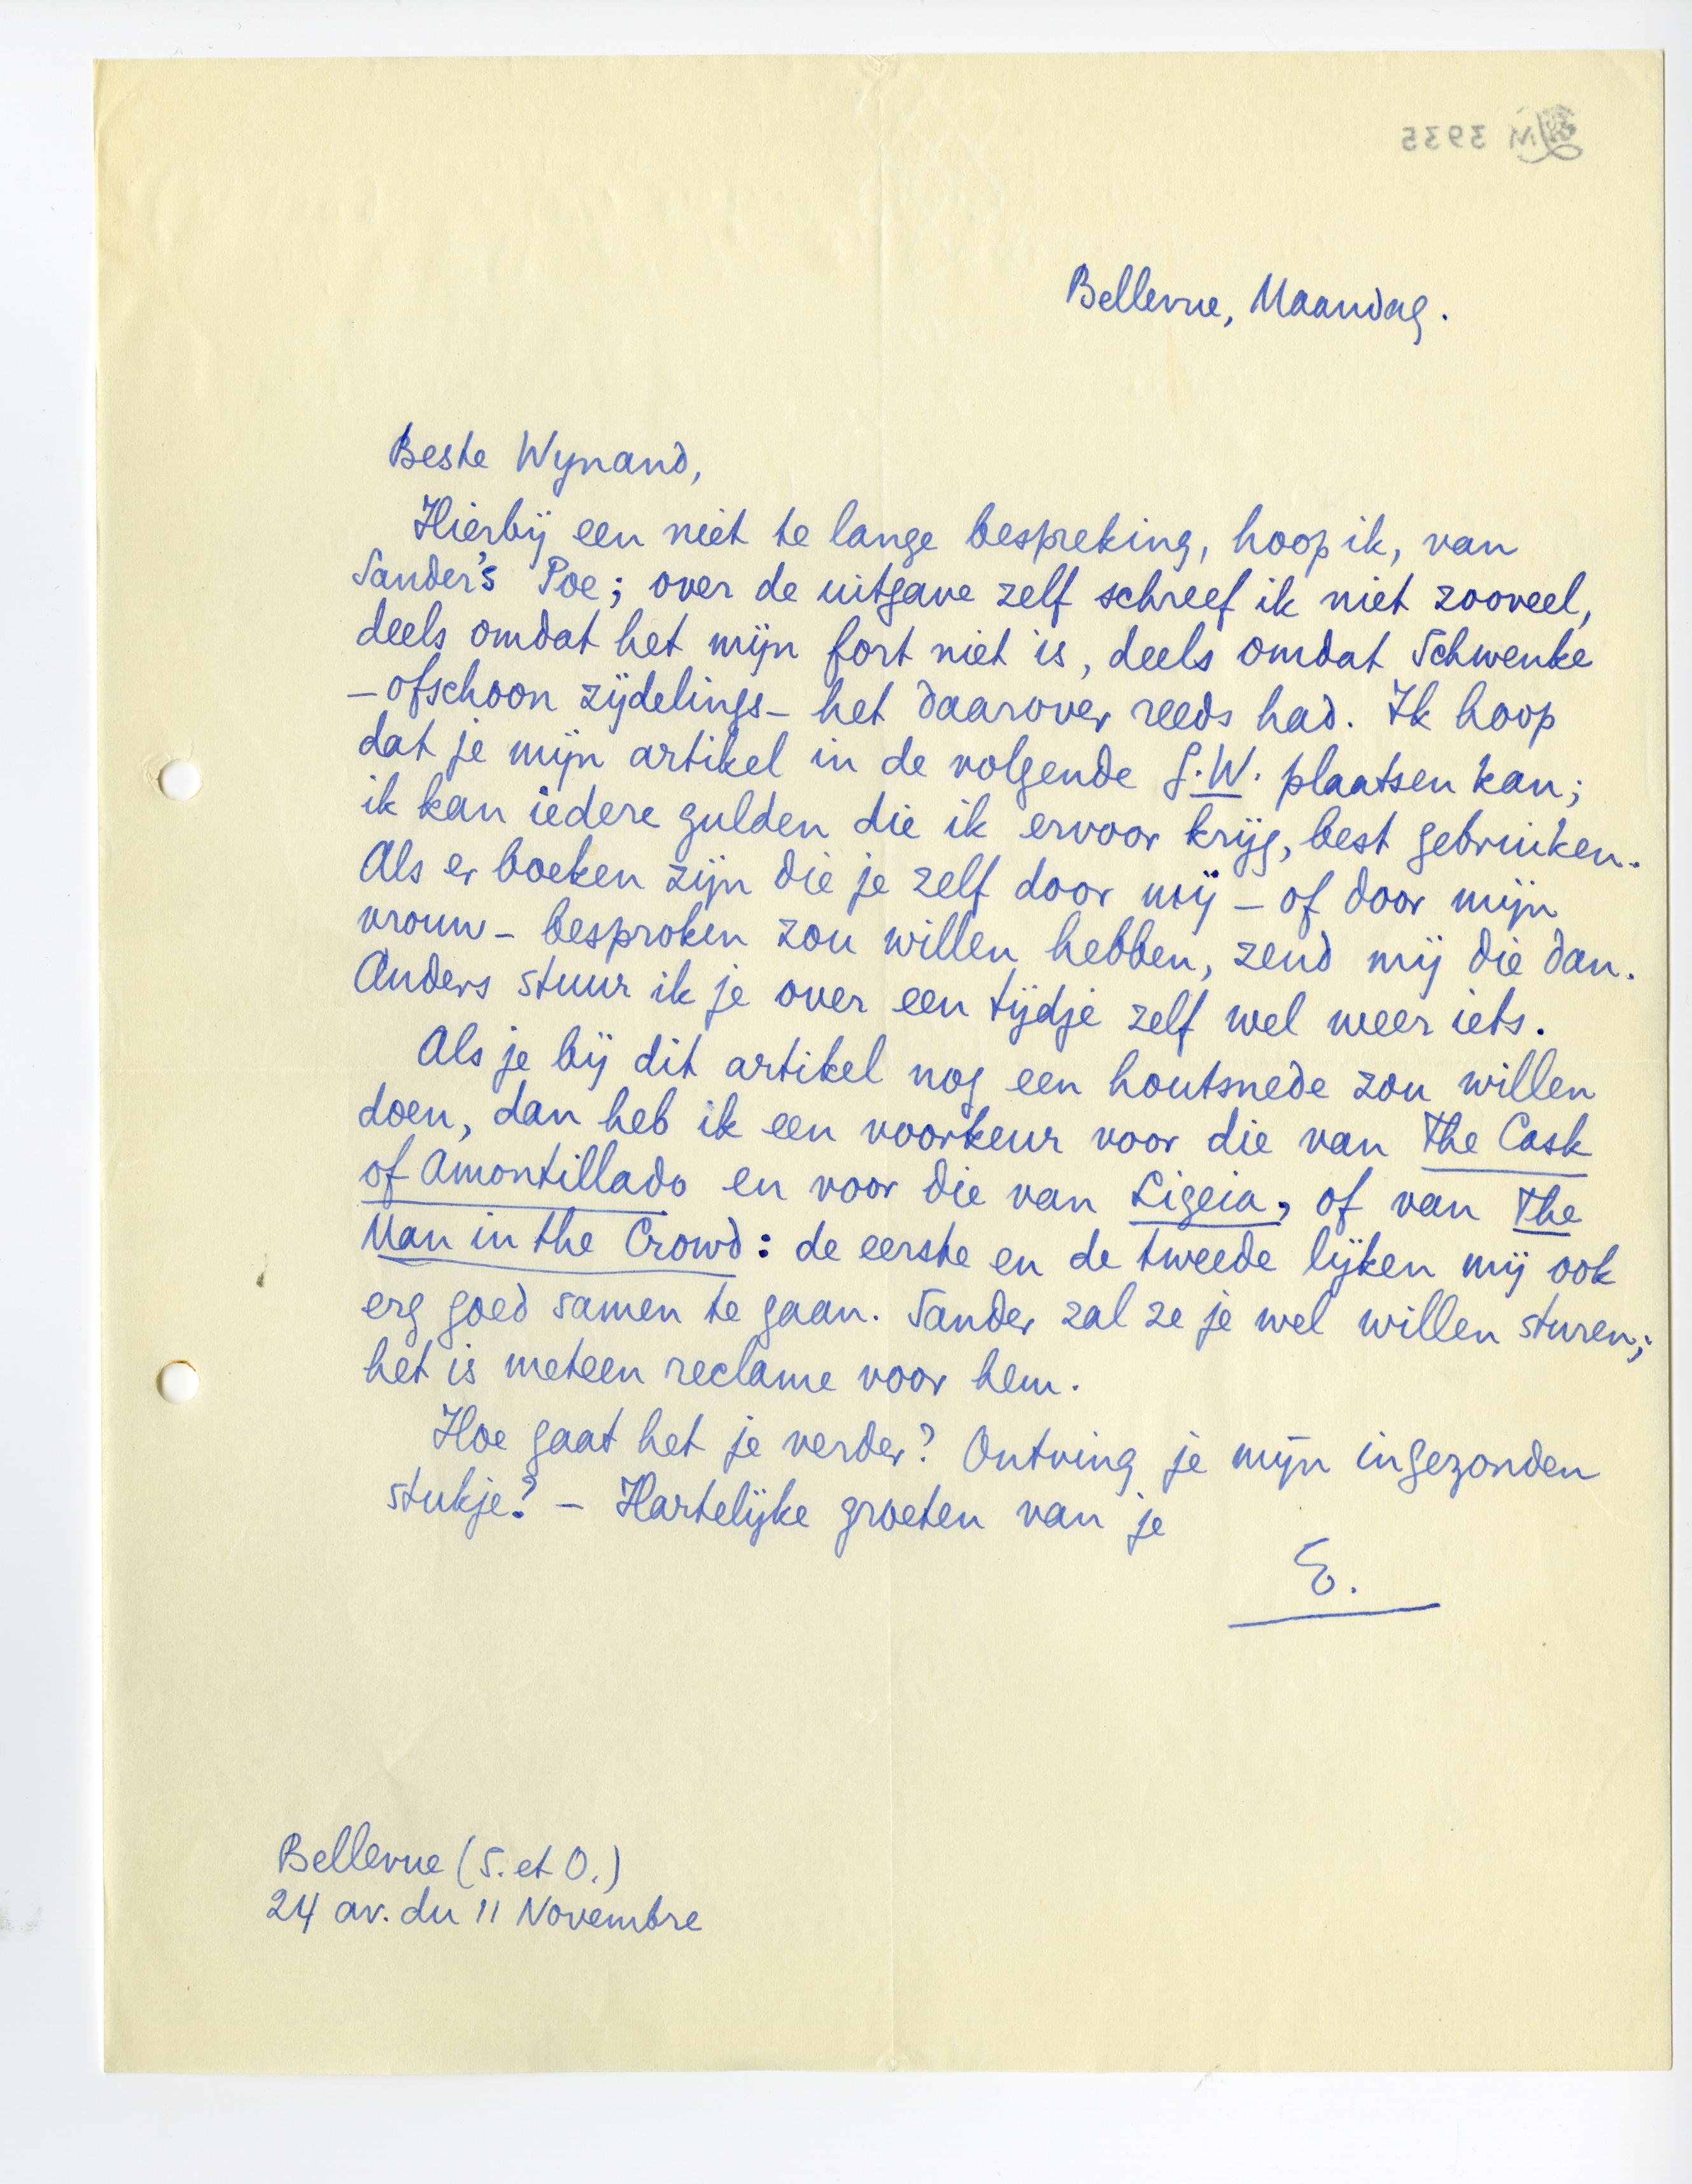 M 3935
Bellevue, Maandag.
Beste Wynand,
Hierbij een niet te lange bespreking, hoop ik, van
Sander's Poe; over de uitgave zelf schreef ik niet zooveel,
deels omdat het mijn fort niet is, deels omdat Schwenke
– ofschoon zijdelings – het daarover reeds had. Ik hoop
dat je mijn artikel in de volgende G.W. plaatsen kan;
ik kan iedere gulden die ik ervoor krijg, best gebruiken.
Als er boeken zijn die je zelf door mij – of door mijn
vrouw – besproken zou willen hebben, zend mij die dan.
Anders stuur ik je over een tijdje zelf wel weer iets.
Als je bij dit artikel nog een houtsnede zou willen
doen, dan heb ik een voorkeur voor die van The Cask
of Amontillado en voor die van Ligeia, of van The
Man in the Crowd: de eerste en de tweede lijken mij ook
erg goed samen te gaan. Sander zal ze je wel willen sturen;
het is meteen reclame voor hem.
Hoe gaat het je verder? Ontving je mijn ingezonden
stukje? – Hartelijke groeten van je
E.
Bellevue (S. et O.)
24 av. du 11 Novembre